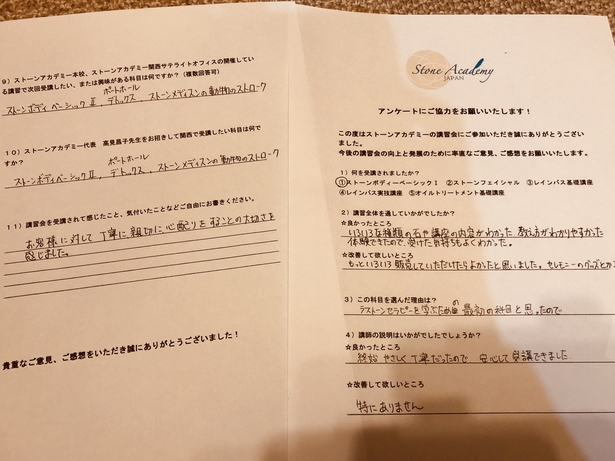 9）ストーンアカデミー本校、ストーンアカデミー関西サテライトオフィスの開催してい
る講習で次回受講したい、または興味がある科目は何ですか？（複数回答可）
ポートホール
ストーンボディベーシックⅡ, デトックス, ストーンメディスンの動物のストローク
10）ストーンアカデミー代表 高見晶子先生をお招きして関西で受講したい科目は何で
すか？
ポートホール
ストーンボディベーシックⅡ, デトックス, ストーンメディスンの動物のストローク
11）講習会を受講されて感じたこと、気付いたことなどご自由にお書きください。
お客様に対して丁寧に親切に心配りをすることの大切さを
感じました。
貴重なご意見、ご感想をいただき誠にありがとうございました！
Stone Academy
JAPAN
アンケートにご協力をお願いいたします！
この度はストーンアカデミーの講習会にご参加いただき誠にありがとうござい
ました。
今後の講習会の向上と発展のために率直なご意見、ご感想をお願いいたします。
1）何を受講されましたか？
①ストーンボディーベーシックⅠ ②ストーンフェイシャル ③レインパス基礎講座
④レインパス実技講座 ⑤オイルトリートメント基礎講座
2）講習全体を通していかがでしたか？
☆良かったところ
いろいろな種類の石や講座の内容がわかった 教え方がわかりやすかった
体験できたので、受けた気持ちもよくわかった。
☆改善して欲しいところ
もっといろいろ販売していただいたらよかったと思いました。セレモニーのグッズとか
3）この科目を選んだ理由は？
ラストーンセラピーを学ぶための最初の科目と思ったので
4）講師の説明はいかがでしたでしょうか？
☆良かったところ
終始 やさしく丁寧だったので 安心して受講できました
☆改善して欲しいところ
特にありません